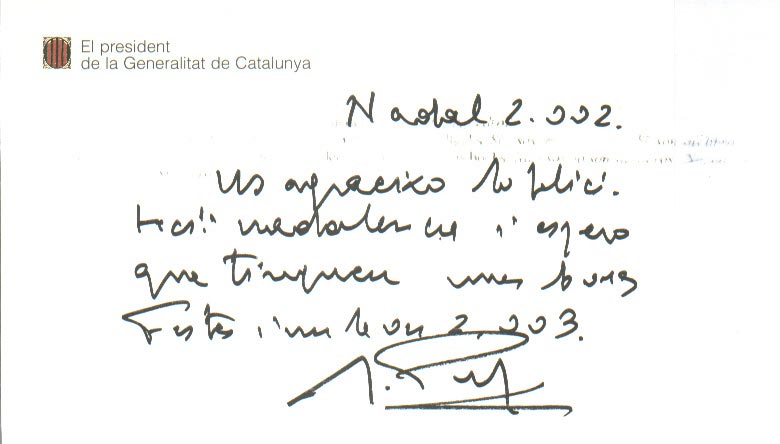 El president
de la Generalitat de Catalunya
Nadal 2.002.
Us agraeixo la felici.
tació nadalenca i espero
que tinguem unes bones
Festes i un bon 2.003.
J. Pujol